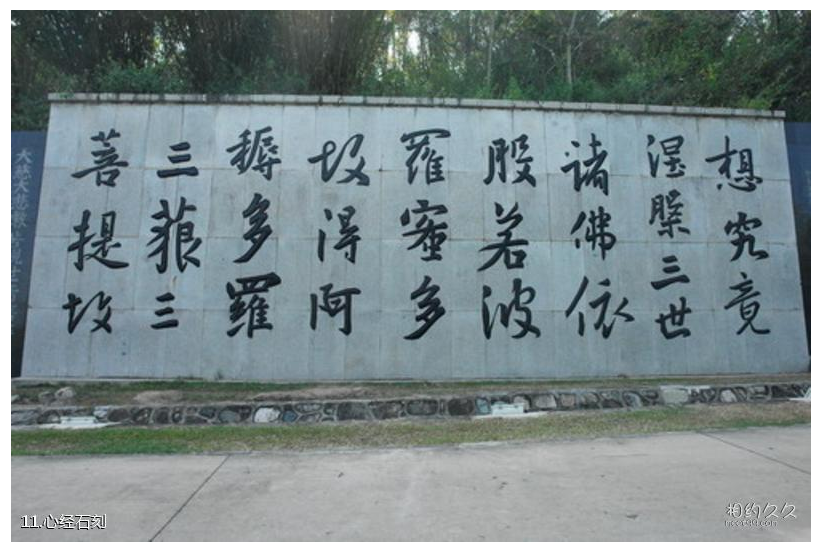 想究竟
涅槃三世
諸佛依
般若波
羅蜜多
故得阿
耨多羅
三藐三
菩提故
大慈大悲救苦觀世音
11.心经石刻
相约久久